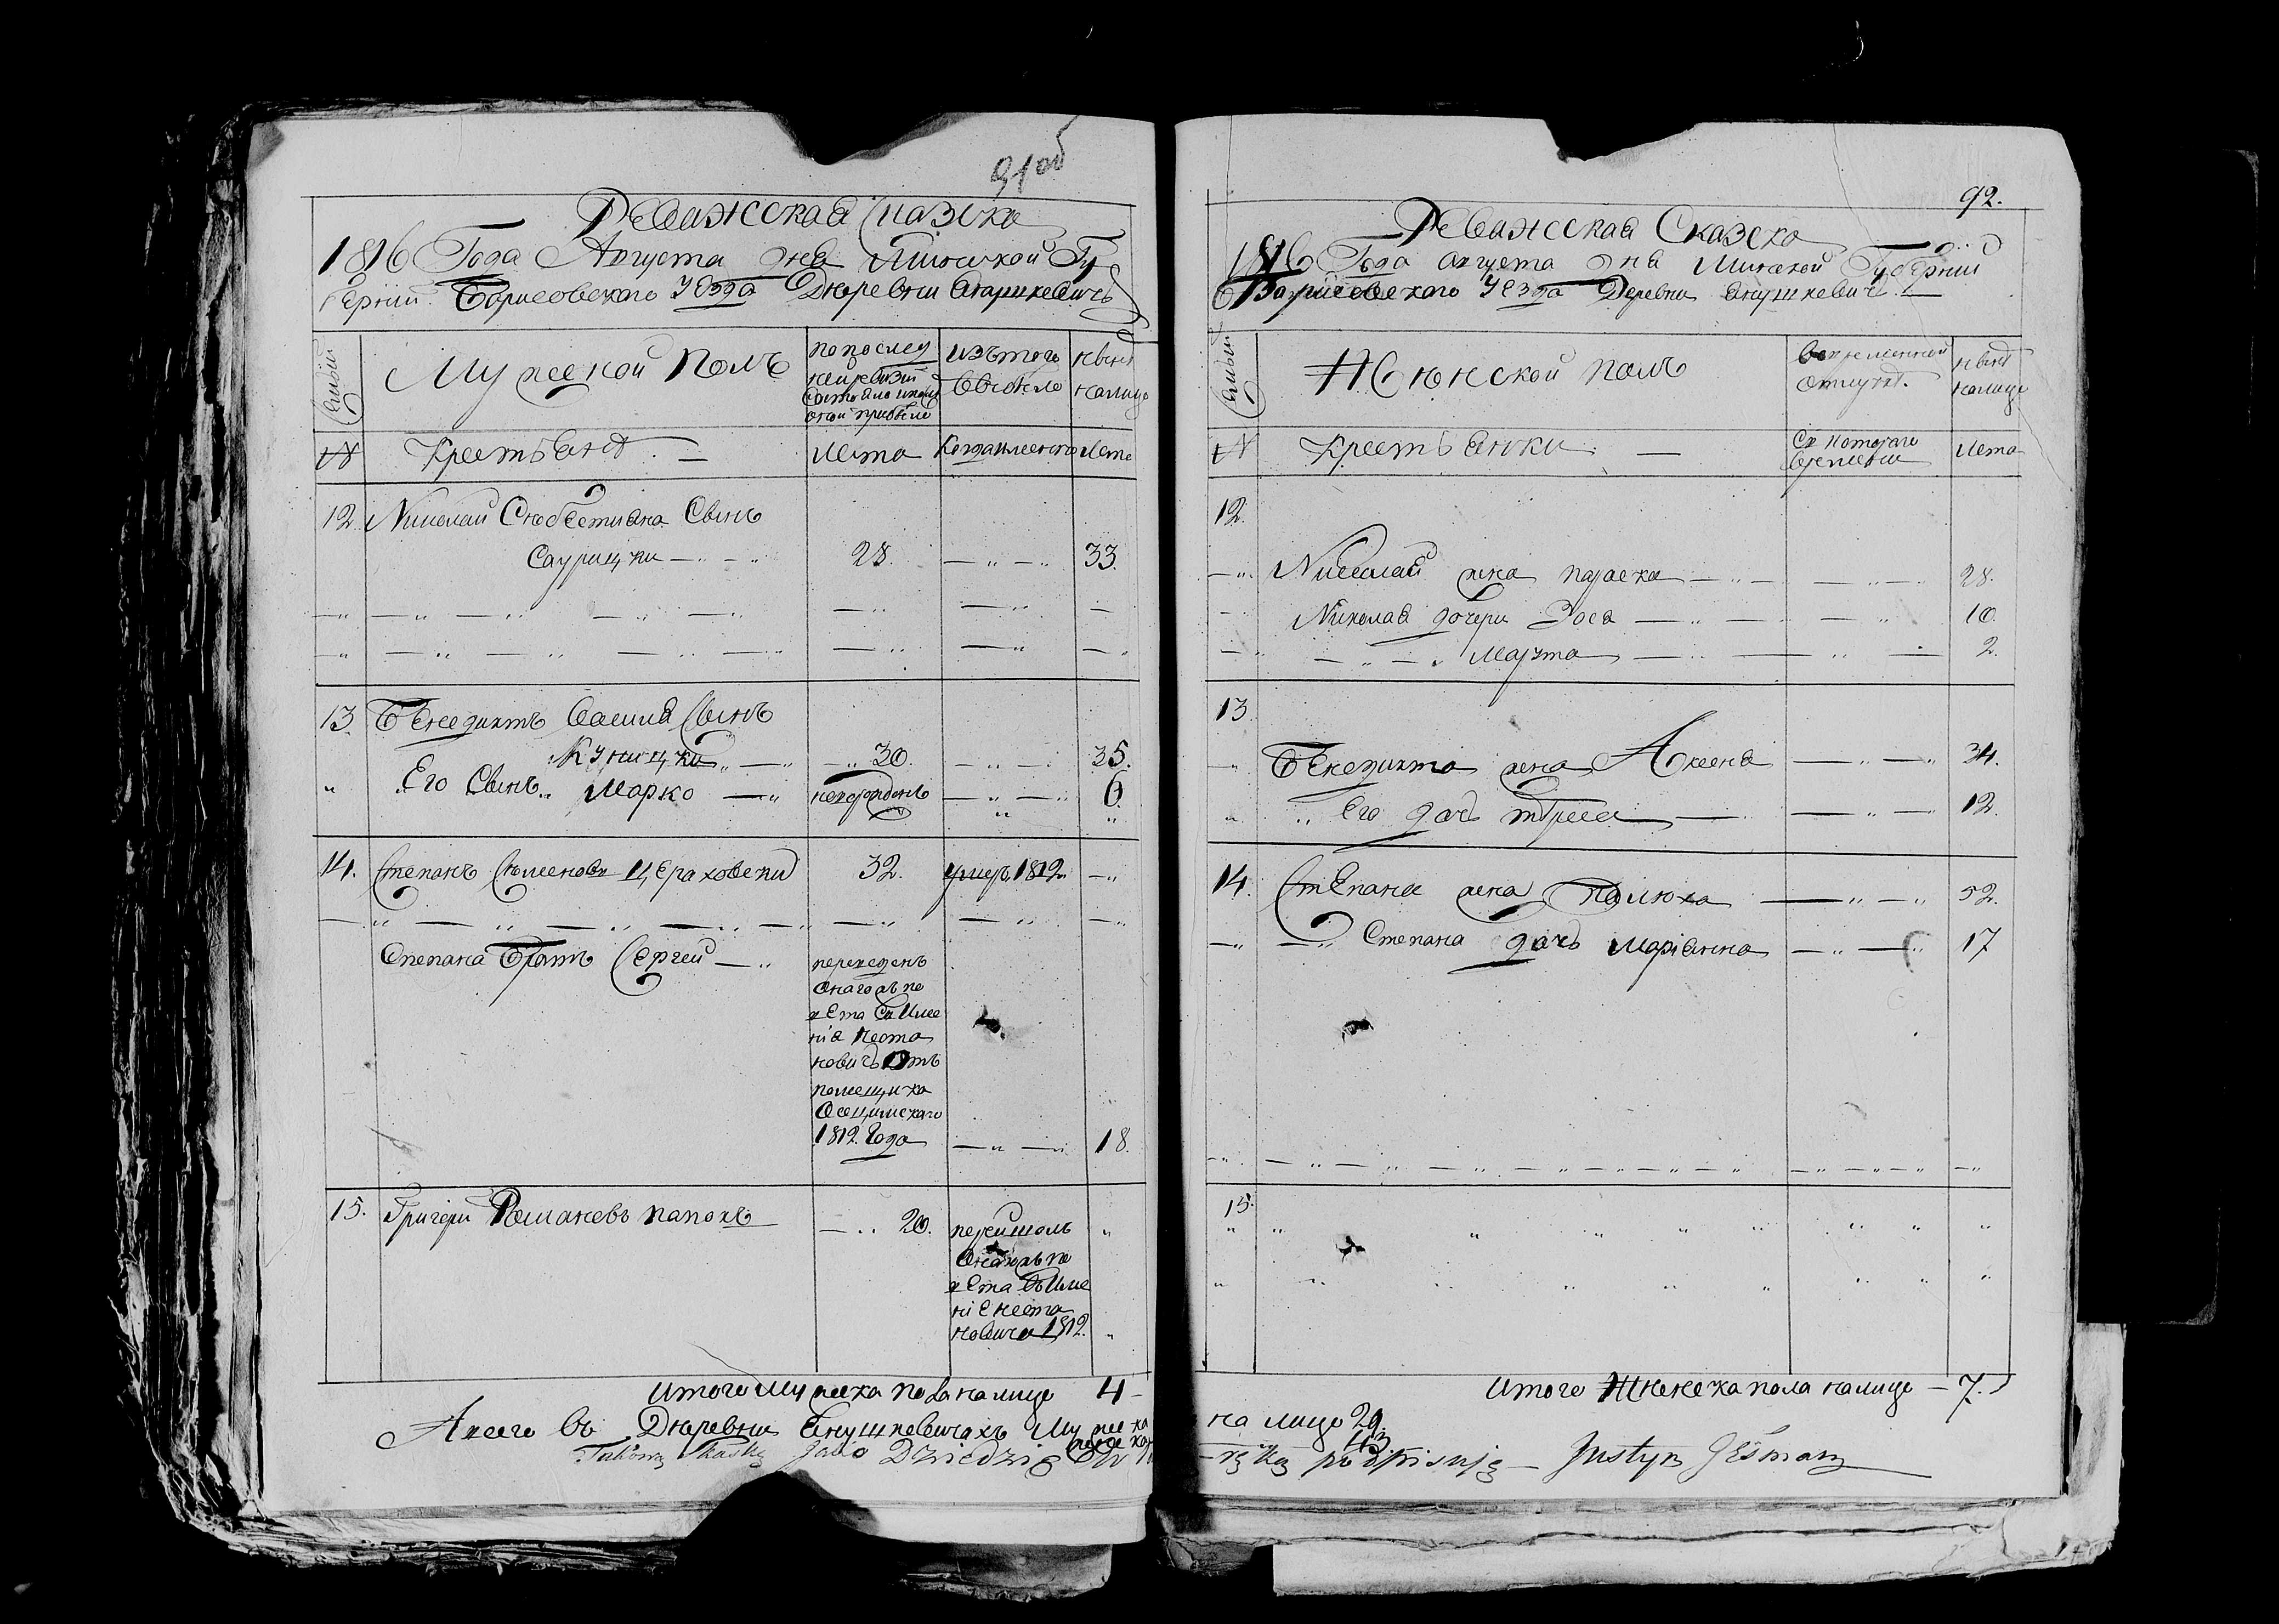 91об
Ревижская Сказска
1816 Года Августа дня Минской Гу
берний Борисовского Уезда Дюревни Янушкевичъ
Семьи
Мужеской Полъ
По послед
ней ревизий
состояло и после
оной прибыло
Изъ того
выбыло
Ныне
налицо
№
Крестьяня —
Лета
Когда именно
Лета
12. Николай Сюбестияна Сынъ
Саурицки — 28. — 33.
13. Бенедиктъ Василия Сынъ
Куницки — 30. — 35.
Его Сынъ Марко — непорожденъ — 6.
14. Степанъ Сюменовъ Цераховски 32. умеръ 1812.
Степана Братъ Сергей —
переведенъ
онаго жъ по
вета Съ Име
нiя Неста
новичъ Отъ
помещика
Осецимскаго
1812. Года — 18.
15. Григери Романовъ Папокъ — 20.
перейшолъ
Онагожъ по
вета Въ Име
нiе Неста
новичи 1812.
Итого Мужеска пола налицо 4 —
А всего въ Дюревни Янушкевичахъ Мужеска
женска
Takową Skaskę jako Dziedzic
92.
Ревижская Сказска
1816 Года августа дня Минской Губернии
Борисовского Уезда Деревни Янушкевич —
Семьи
Женской полъ
Во временной
отлучке.
Ныне
налице
№
Крестьянки —
Съ которого
времени
Лета
12.
Николай жена параска — 28.
Николая дочери Зося — 10.
Марта — 2.
13
Бенедикта жена Аксеня — 34.
Его дочь тереса — 12.
14. Степана жена Палюха — 52.
Степана дочь Марiанна — 17
15.
Итого Женска пола налицо — 7.
на лицо 29.
43
ręką podpisuję — Justyn